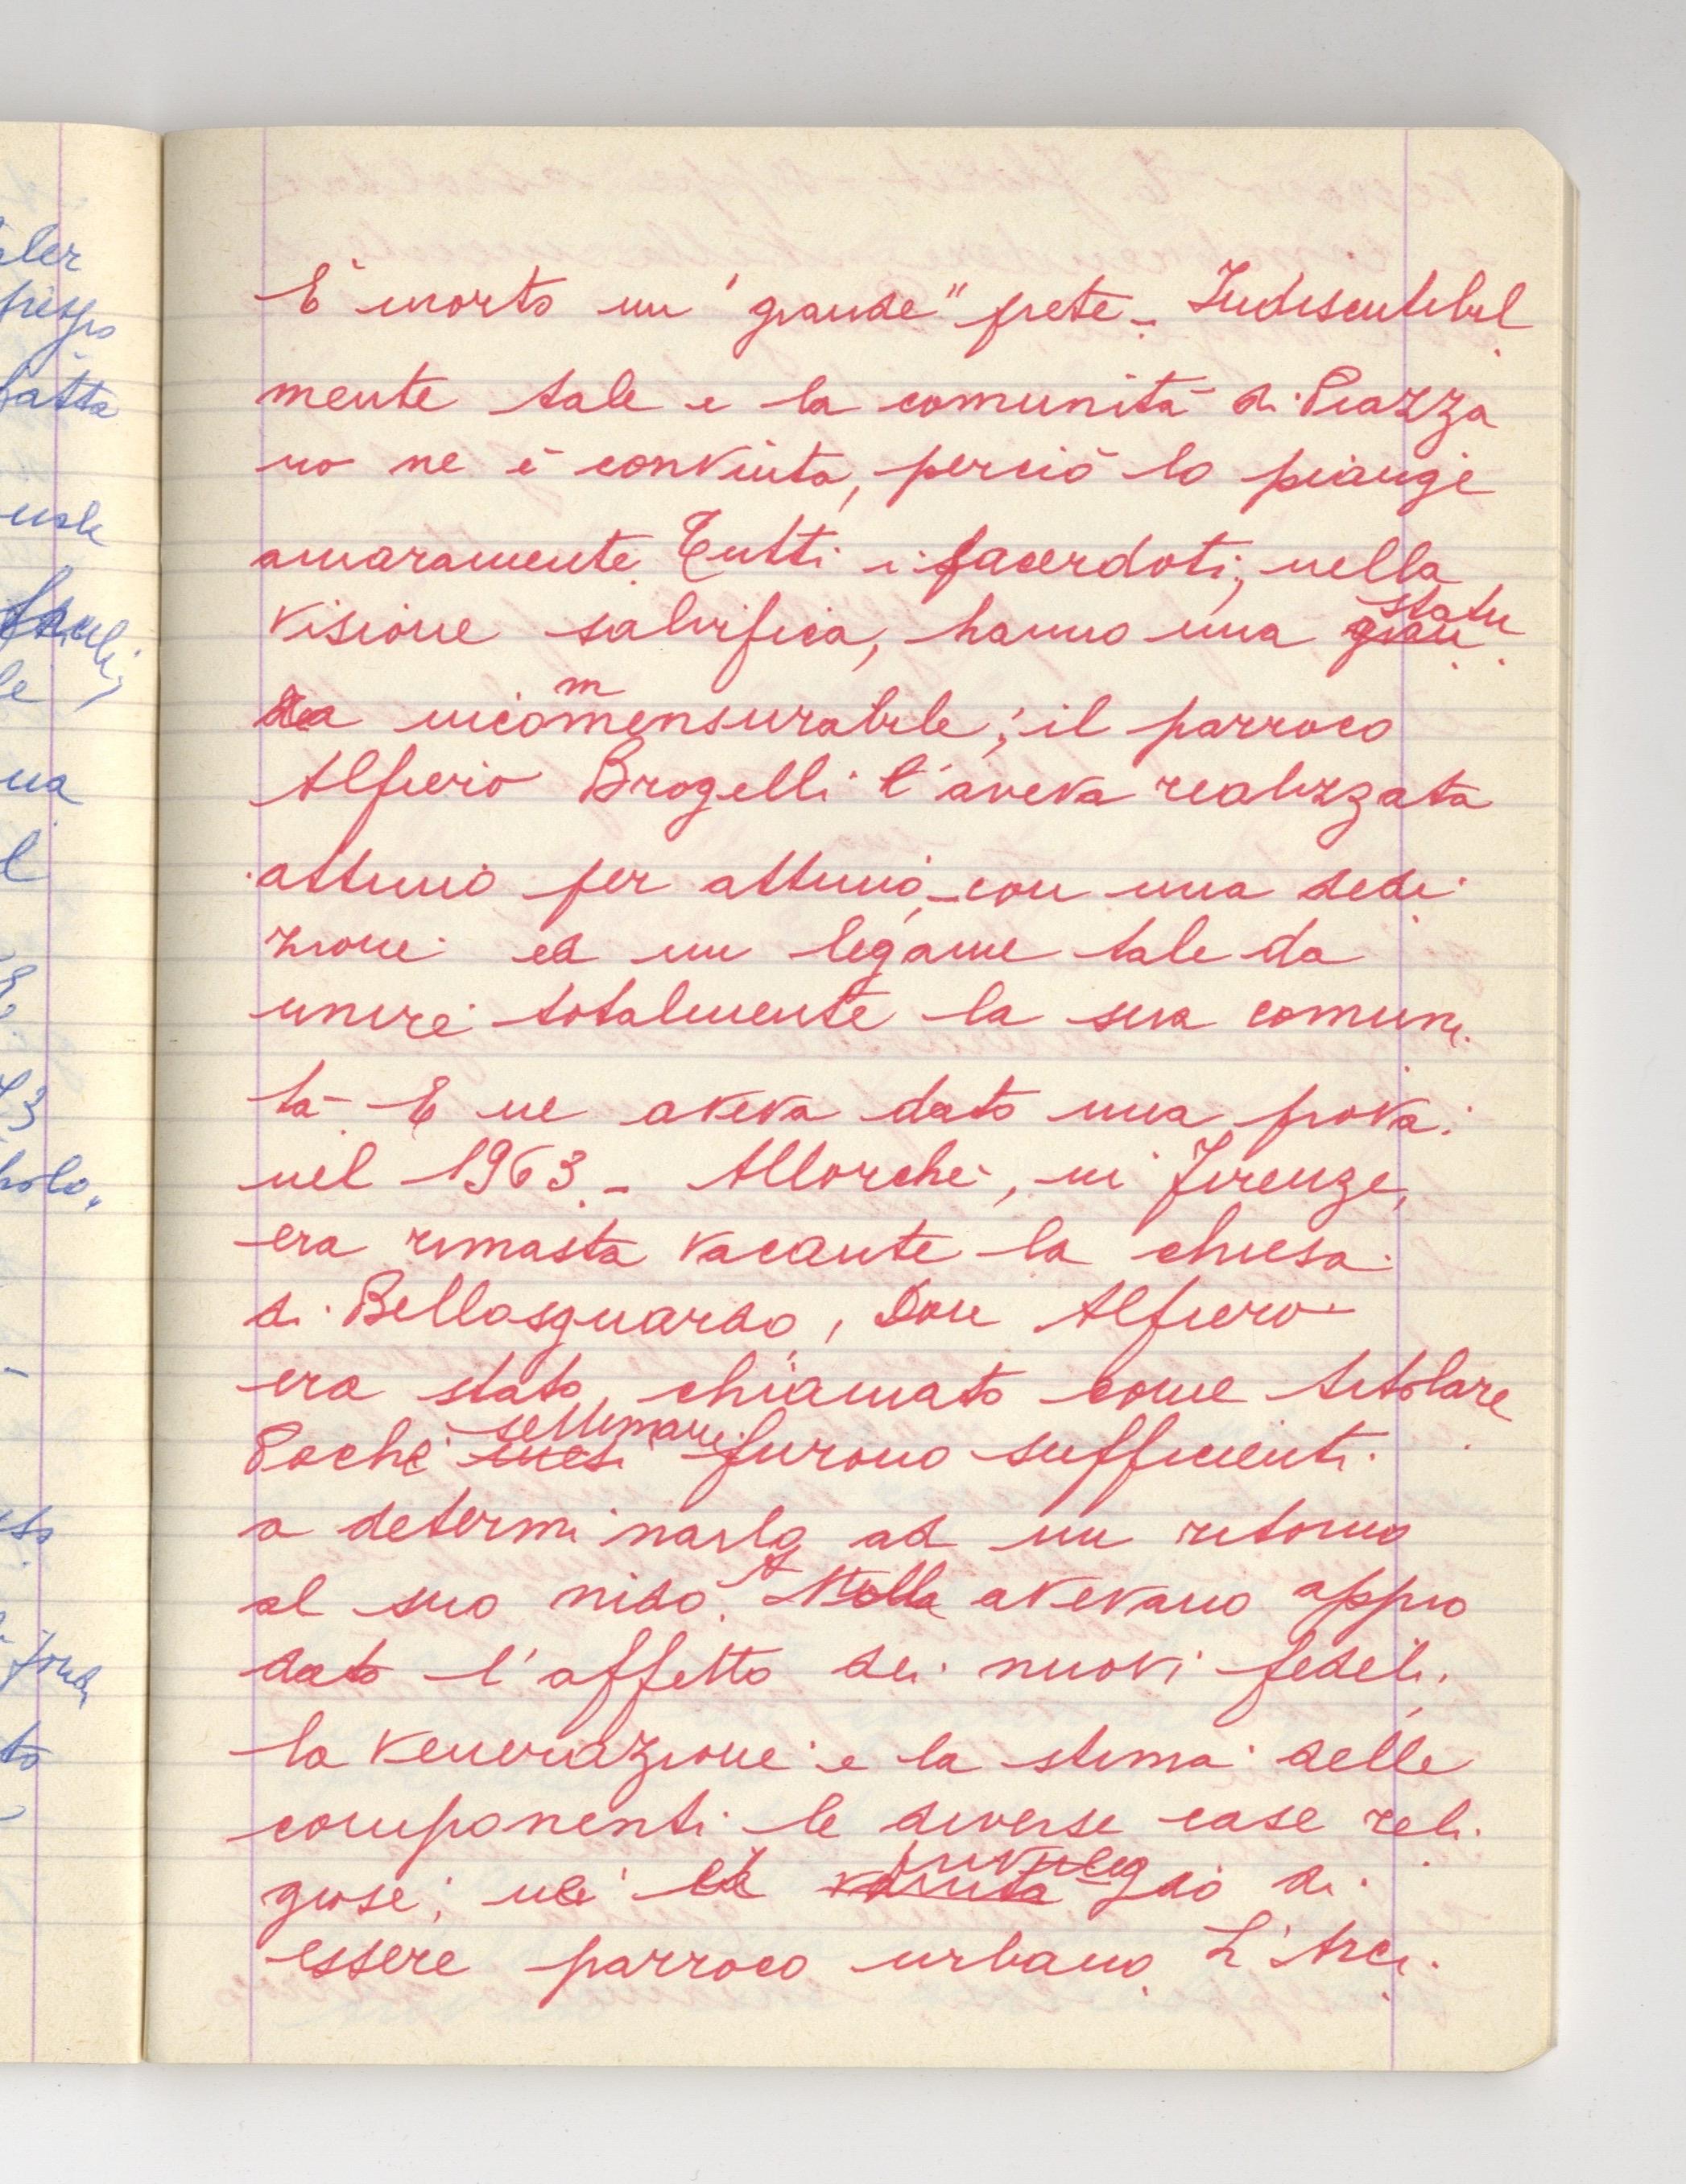 È morto un "grande" prete. Indiscutibil
mente tale e la comunità di Piazza
no ne è convinta, perciò lo piange
amaramente. Tutti i sacerdoti, nella
visione salvifica, hanno una statu
ra incommensurabile; il parroco
Alfiero Brogelli l'aveva realizzata
attimo per attimo, con una dedi
zione ed un legame tale da
unire totalmente la sua comuni
tà. E ne aveva dato una prova
nel 1963. - Allorché, in Firenze,
era rimasta vacante la chiesa
di Bellosguardo, Don Alfiero
era stato chiamato come titolare.
Poche settimane furono sufficienti
a determinarlo ad un ritorno
al suo nido. A nulla avevano appro
dato l'affetto dei nuovi fedeli,
la venerazione e la stima delle
componenti le diverse case reli
giose; né il privilegio di
essere parroco urbano. L'Arci